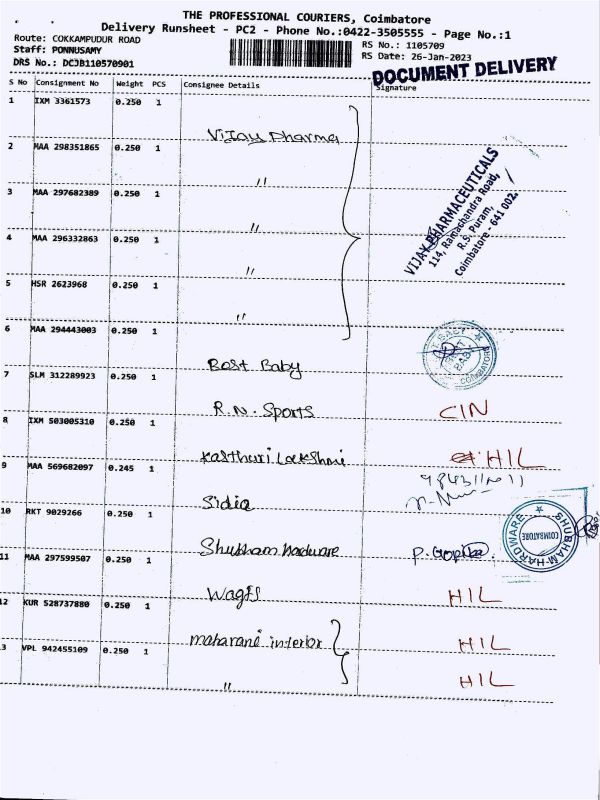 THE PROFESSIONAL COURIERS, Coimbatore
Delivery Runsheet - PC2 - Phone No.:0422-3505555 - Page No.:1
Route: COKKAMPUDUR ROAD
Staff: PONNUSAMY
DRS No.: DCJB110570901
RS No.: 1105709
RS Date: 26-Jan-2023
DOCUMENT DELIVERY
S No Consignment No Weight PCS Consignee Details Signature
1 IXM 3361573 0.250 1
Vijay Pharma
2 MAA 298351865 0.250 1
"
3 MAA 297682389 0.250 1
"
4 MAA 296332863 0.250 1
"
5 HSR 2623968 0.250 1
"
VIJAY PHARMACEUTICALS
114, Ramachandra Road,
R.S. Puram,
Coimbatore - 641 002.
6 MAA 294443003 0.250 1
Best Baby
COIMBATORE
7 SLM 312289923 0.250 1
R.N. Sports CIN
8 IXM 503005310 0.250 1
Kasthuri Lakshmi HIL
9 MAA 569682097 0.245 1
Sidia
10 RKT 9029266 0.250 1
Shubham hardware P. Gopika
SHUBHAM HARDWARE
COIMBATORE
11 MAA 297599507 0.250 1
HIL
12 KUR 528737880 0.250 1
maharani interior HIL
3 VPL 942455109 0.250 1
" HIL